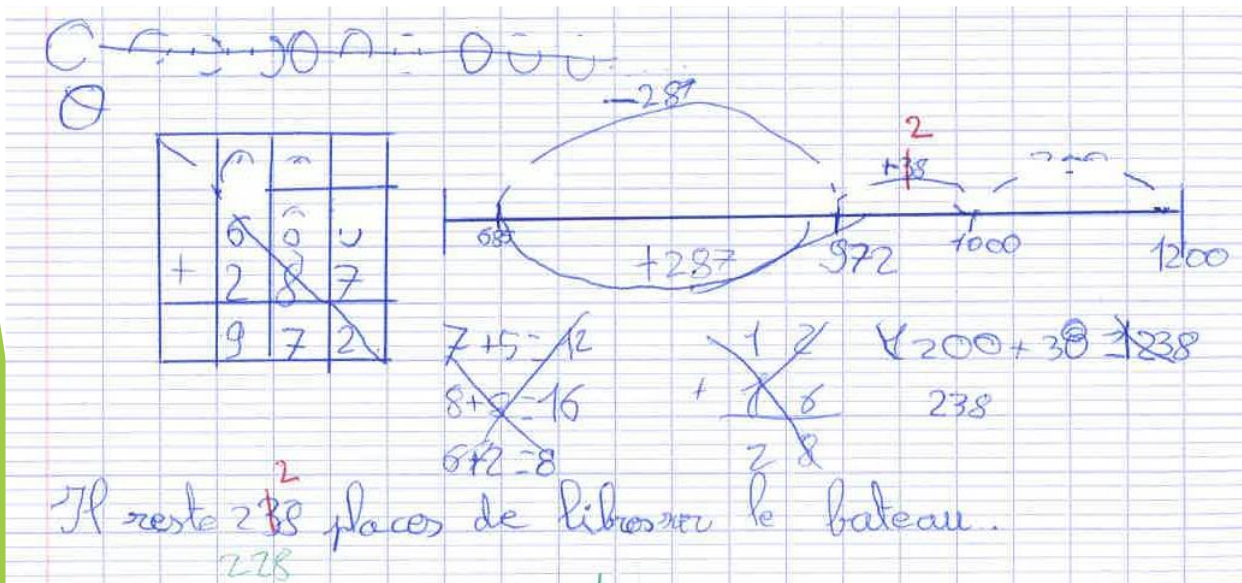 -287
2
+38
685
+287
972
1000
1200
6
+ 2 8 7
9 7 2
7+5=12
8+8=16
6+2=8
1 2
+ 1 6
2 8
200+38=1238
238
2
Il reste 238 places de libres sur le bateau.
228